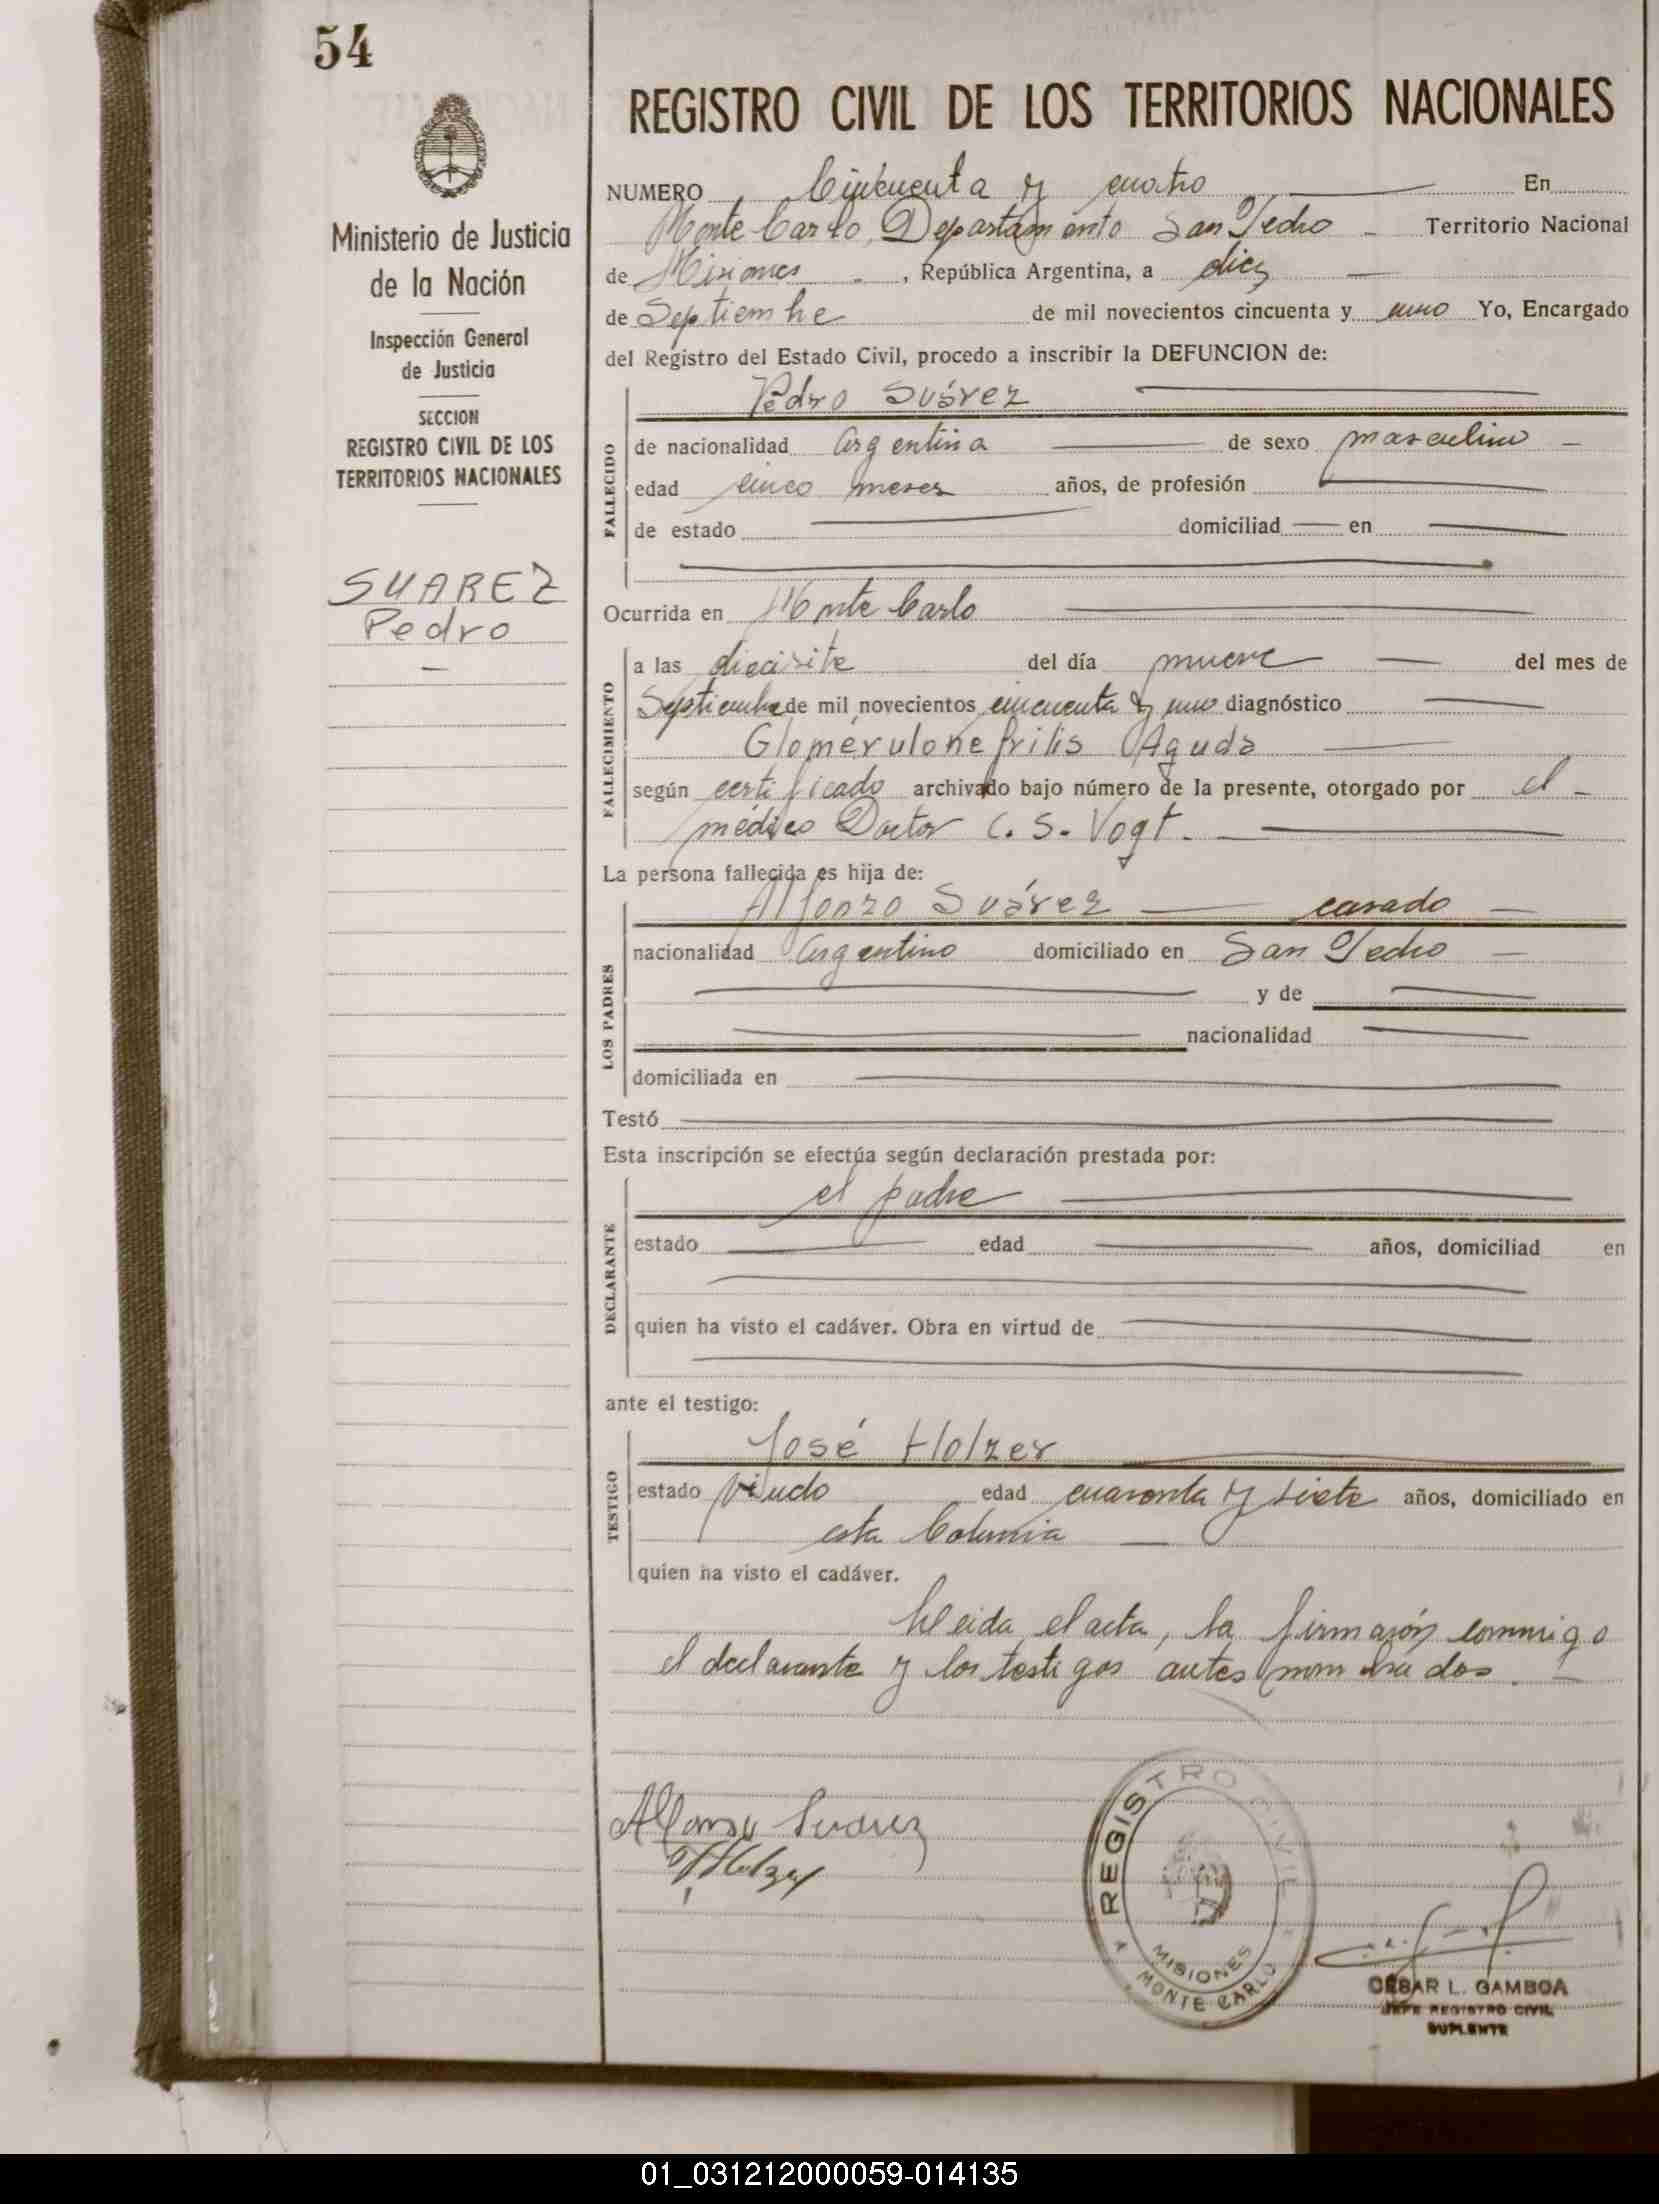 54
Ministerio de Justicia
de la Nación
Inspección General
de Justicia
SECCION
REGISTRO CIVIL DE LOS
TERRITORIOS NACIONALES
SUAREZ
Pedro
REGISTRO CIVIL DE LOS TERRITORIOS NACIONALES
NUMERO Cincuenta y cuatro En
Monte Carlo, Departamento San Pedro Territorio Nacional
de Misiones, República Argentina, a diez
de Septiembre de mil novecientos cincuenta y uno Yo, Encargado
del Registro del Estado Civil, procedo a inscribir la DEFUNCION de:
Pedro Suárez
FALLECIDO
de nacionalidad Argentina de sexo masculino
edad cinco meses años, de profesión
de estado domiciliad en
Ocurrida en Monte Carlo
FALLECIMIENTO
a las diecisite del día nueve del mes de
Septiembre de mil novecientos cincuenta y uno diagnóstico
Glomérulonefritis Aguda
según certificado archivado bajo número de la presente, otorgado por el
médico Doctor C. S. Vogt.
La persona fallecida es hija de:
LOS PADRES
Alfonzo Suárez casado
nacionalidad Argentino domiciliado en San Pedro
y de
nacionalidad
domiciliada en
Testó
Esta inscripción se efectúa según declaración prestada por:
DECLARANTE
el padre
estado edad años, domiciliad en
quien ha visto el cadáver. Obra en virtud de
ante el testigo:
TESTIGO
José Holzer
estado viudo edad cuarenta y siete años, domiciliado en
esta Colonia
quien ha visto el cadáver.
Leida el acta, la firmarón conmigo
el declarante y los testigos antes nombrados.
Alfonso Suarez
Holzer
REGISTRO CIVIL
MISIONES
MONTE CARLO
CESAR L. GAMBOA
JEFE REGISTRO CIVIL
SUPLENTE
01_031212000059-014135